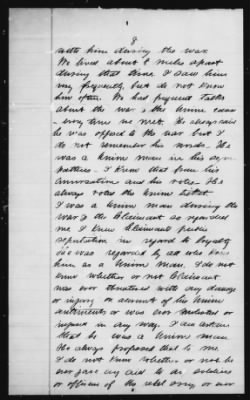 8
with him during the war.
We lived about 8 miles apart
during that time. I saw him
very frequently, but do not know
how often. We had frequent talks
about the war & the Union cause
every time we met. He always said
he was opposed to the war but I
do not remember his words. He
was a Union man in his sym-
pathies. I know that from his
conversations and his votes. He
always voted the Union ticket.
I was a Union man during the
war & the Claimant so regarded
me I knew Claimant public
reputation in regard to loyalty
He was regarded by all who knew
him as a Union man. I do not
know whether or not Claimant
was ever threatened with any damage
or injury on account of his Union
sentiments or was ever molested or
injured in any way. I am certain
that he was a Union man
He always professed that to me.
I do not know whether or not he
ever gave any aid to an soldiers
or officers of the rebel army or ever